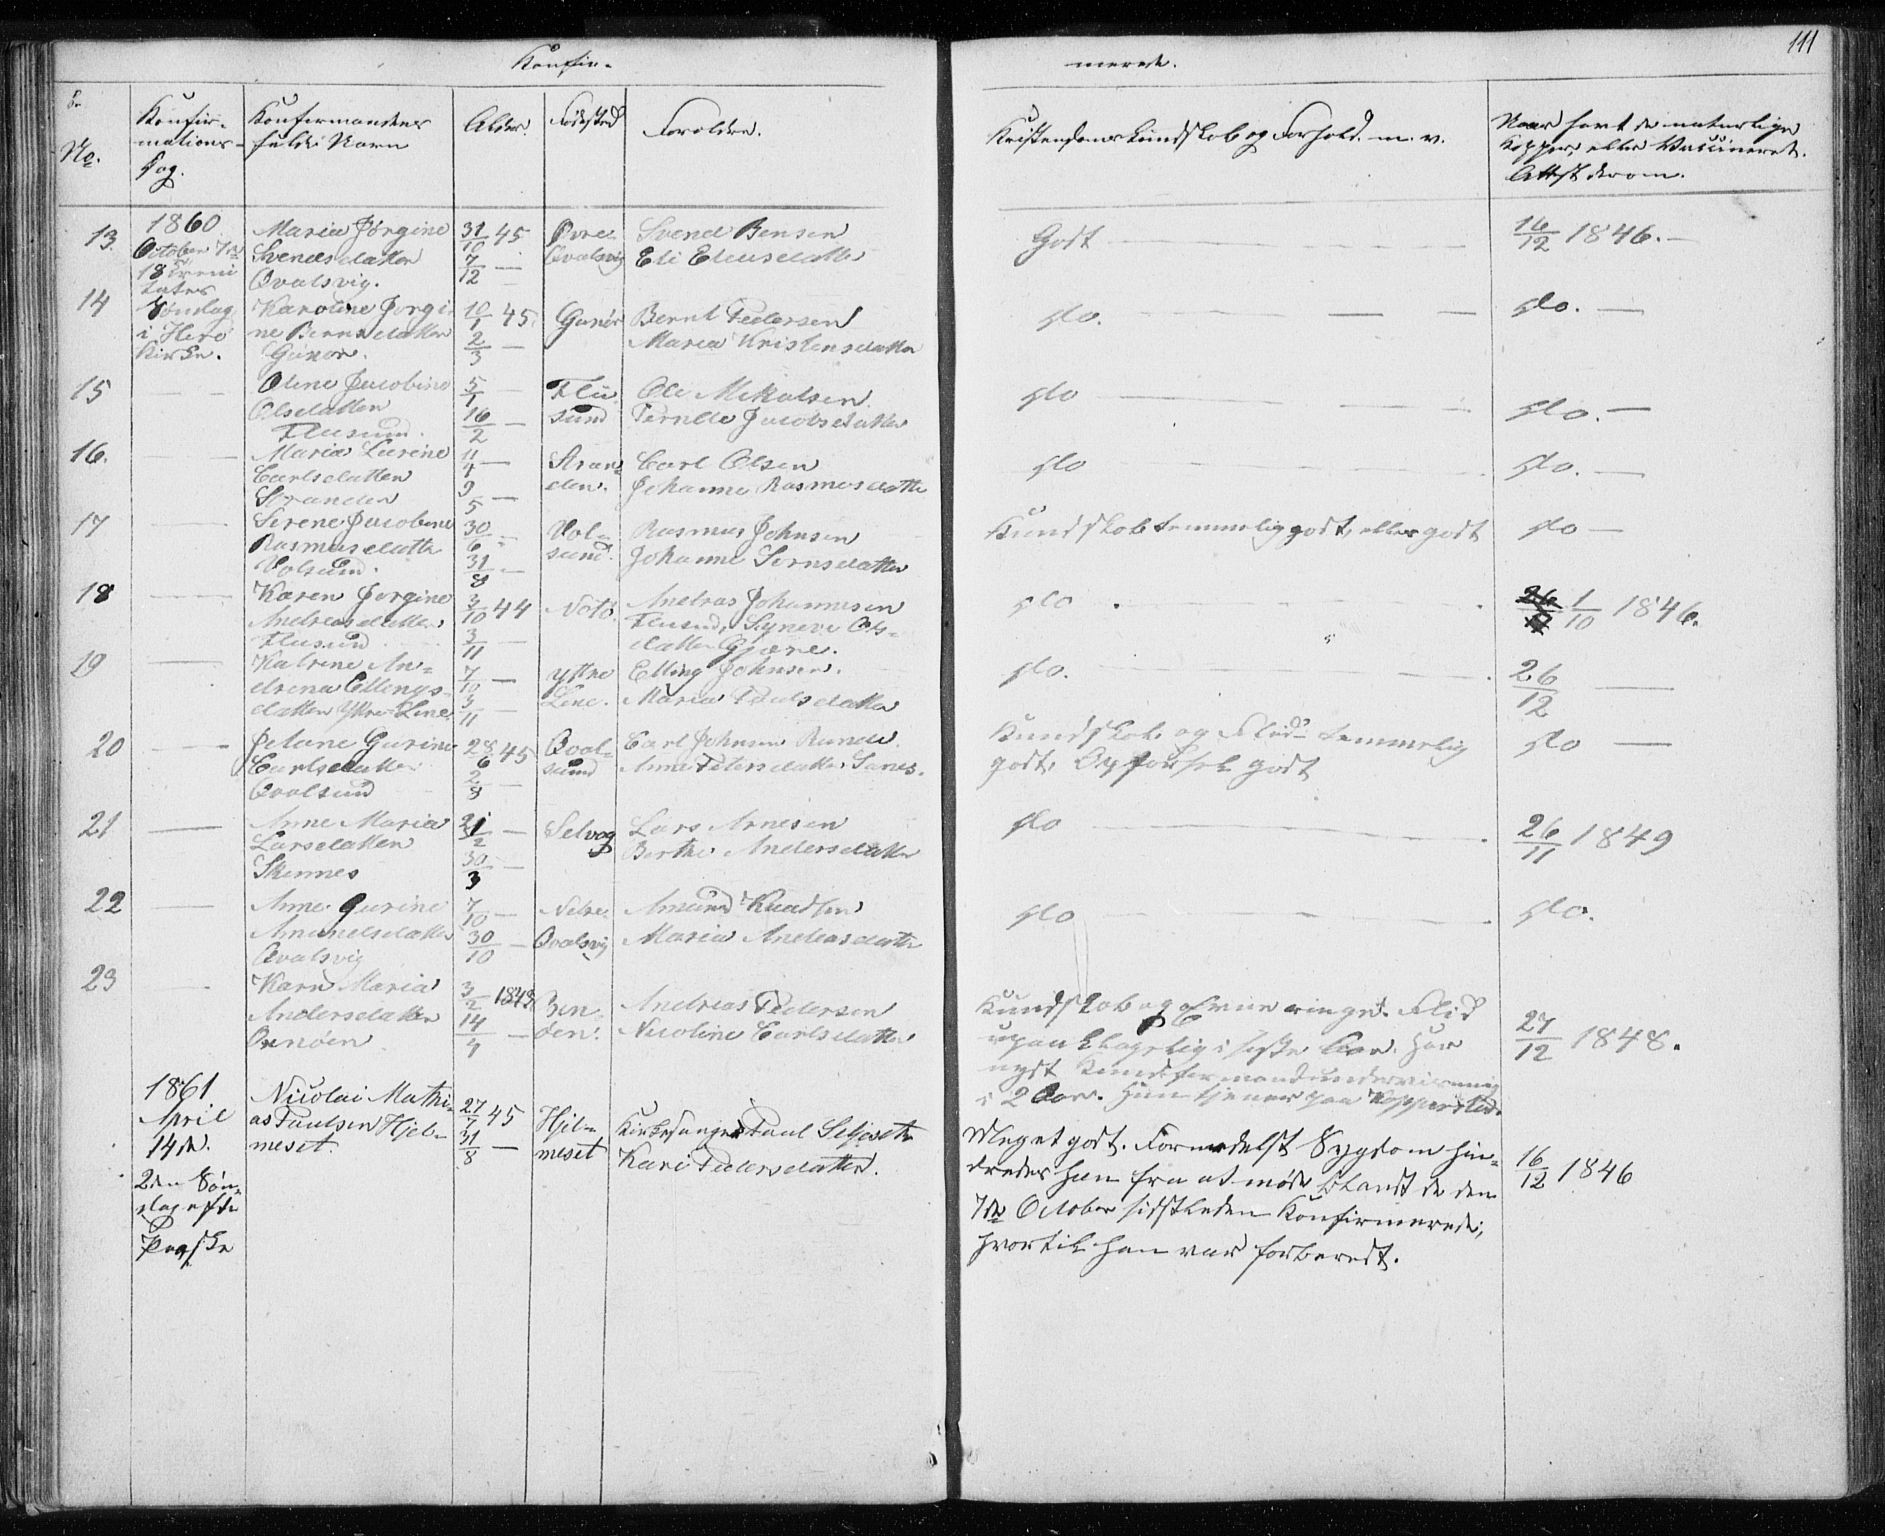 111
Konfir-
merede.
No.
Konfir-
mations-
Dag.
Konfirmandens
fulde Navn
Alder.
Fødested
Forældre.
Kristendoms Kundskab og Forhold. m. v.
Naar havt de naturlige
Kopper, eller Vaccineret.
Attest derom.
13
1860
October 7de
18 Trini
tates
Maria Jørgine
Svendsdatter
Qvalsvig.
31/10 45
7/12 —
Øvre
Qvalsvig
Svend Bensen
Eli Eliusdatter
Godt
16/12 1846. —
14
Søndag
i Herø
Kirke.
Karoline Jørgi
ne Berntsdatter
10/1 45
2/3 —
Bernt Pedersen
Maria Kristensdatter
do.
do. —
15
Oline Jacobine
Olsdatter
Flusund.
5/1 —
16/2 —
Flu
sund
Ole Mikalsen
Pernlle Jacobsdatter
do
do. —
16.
Maria Larine
Carlsdatter
Stranden
11/4 —
9/5 —
Stran
den.
Carl Olsen
Johanne Rasmusdatter
do
do. —
17
Serene Jacobine
Rasmusdatter
Volsund.
30/6 —
31/8 —
Vol-
sund.
Rasmus Johnsen
Johanne Sørnsdatter
Kundskab temmelig godt, ellers godt
do —
18
Karen Jørgine
Andreasdatter
Flusund
3/10 44
3/11 —
Notø.
Andras Johannesen
Flusund, Syneve Ols-
datter Gjære.
do
1/10 1846.
19
Katrine An-
drena Ellings-
datter Yttre Line.
7/10 —
3/11 —
Yttre
Line.
Elling Johnsen.
Maria Paulsdatter
do.
26/12 —
20
Jetane Gurine
Carlsdatter
Qvalsund
28/6 45
2/8 —
Qval-
sund
Carl Johnsen Runde.
Anne Petersdatter Sanes.
Kundskab og Flid temmelig
godt, Opførsel godt
do —
21
Anne Maria
Larsdatter
Skinnes
21/2 —
30/3 —
Selvog
Lars Arnesen
Berthe Andersdatter
do
26/11 1849
22
Anne Gurine
Amundsdatter
Qvalsvig
7/10 —
30/10 —
Nedre
Qvalsvig
Amund Knudsen
Maria Andersdatter
do
do.
23
Karn Maria
Andersdatter
3/2 1843
14/4 —
Andreas Pedersen
Nicoline Carlsdatter
Kundskab og Evne ringe. Flid
upaaklagelig i sidste Aar. Har
nydt Konfirmandundervisning
i 2 Aar. Hun tjener paa Kopperstad.
27/12 1848.
1861
April
14de.
2den Søn-
dag efter
Paaske
Nicolai Mathi-
as Paulsen Hjel-
meset.
27/7 45
31/8 —
Hjel-
meset
Kirkesanger Paul Seljeseth
Kari Pedersdatter.
Meget godt. Formedelst Sygdom hin-
dredes han fra at møde blandt de den
7de October sidstleden Konfirmerede,
hvortil han var forberedt.
16/12 1846